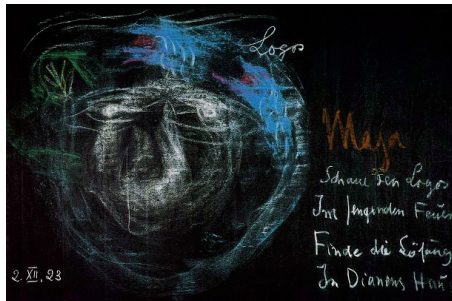 Logos
Maja
Schaue den Logos
Im sengenden Feuer
Finde die Lösung
In Dianens Hau
2. XII. 23